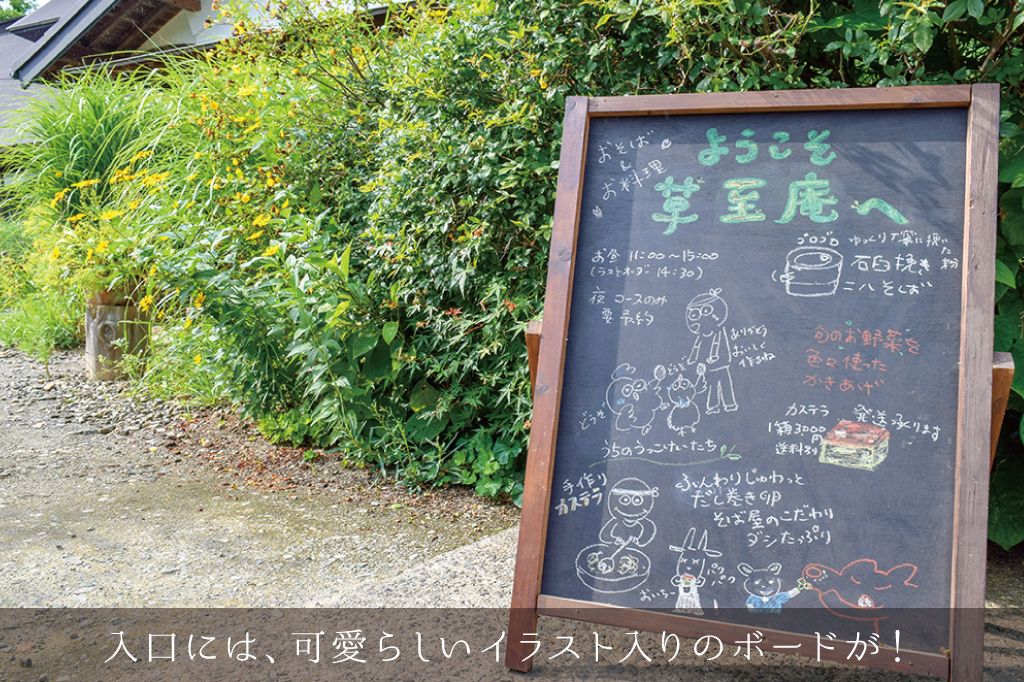 おそば
&
お料理
ようこそ
草至庵へ
お昼 11:00～15:00
(ラストオーダ 14:30)
夜 コースのみ
要予約
ゴロゴロ
ゆっくり丁寧に挽いた
石臼挽き粉
二八そば
ありがとう
おいしく
作るね
どうぞ
どうぞ
うちのうっこけいたち
旬のお野菜を
色々使った
かきあげ
カステラ
1箱3000円
送料別
発送承ります
手作り
カステラ
ふんわりじゅわっと
だし巻き卵
そば屋のこだわり
ダシたっぷり
おいちー
入口には、可愛らしいイラスト入りのボードが！